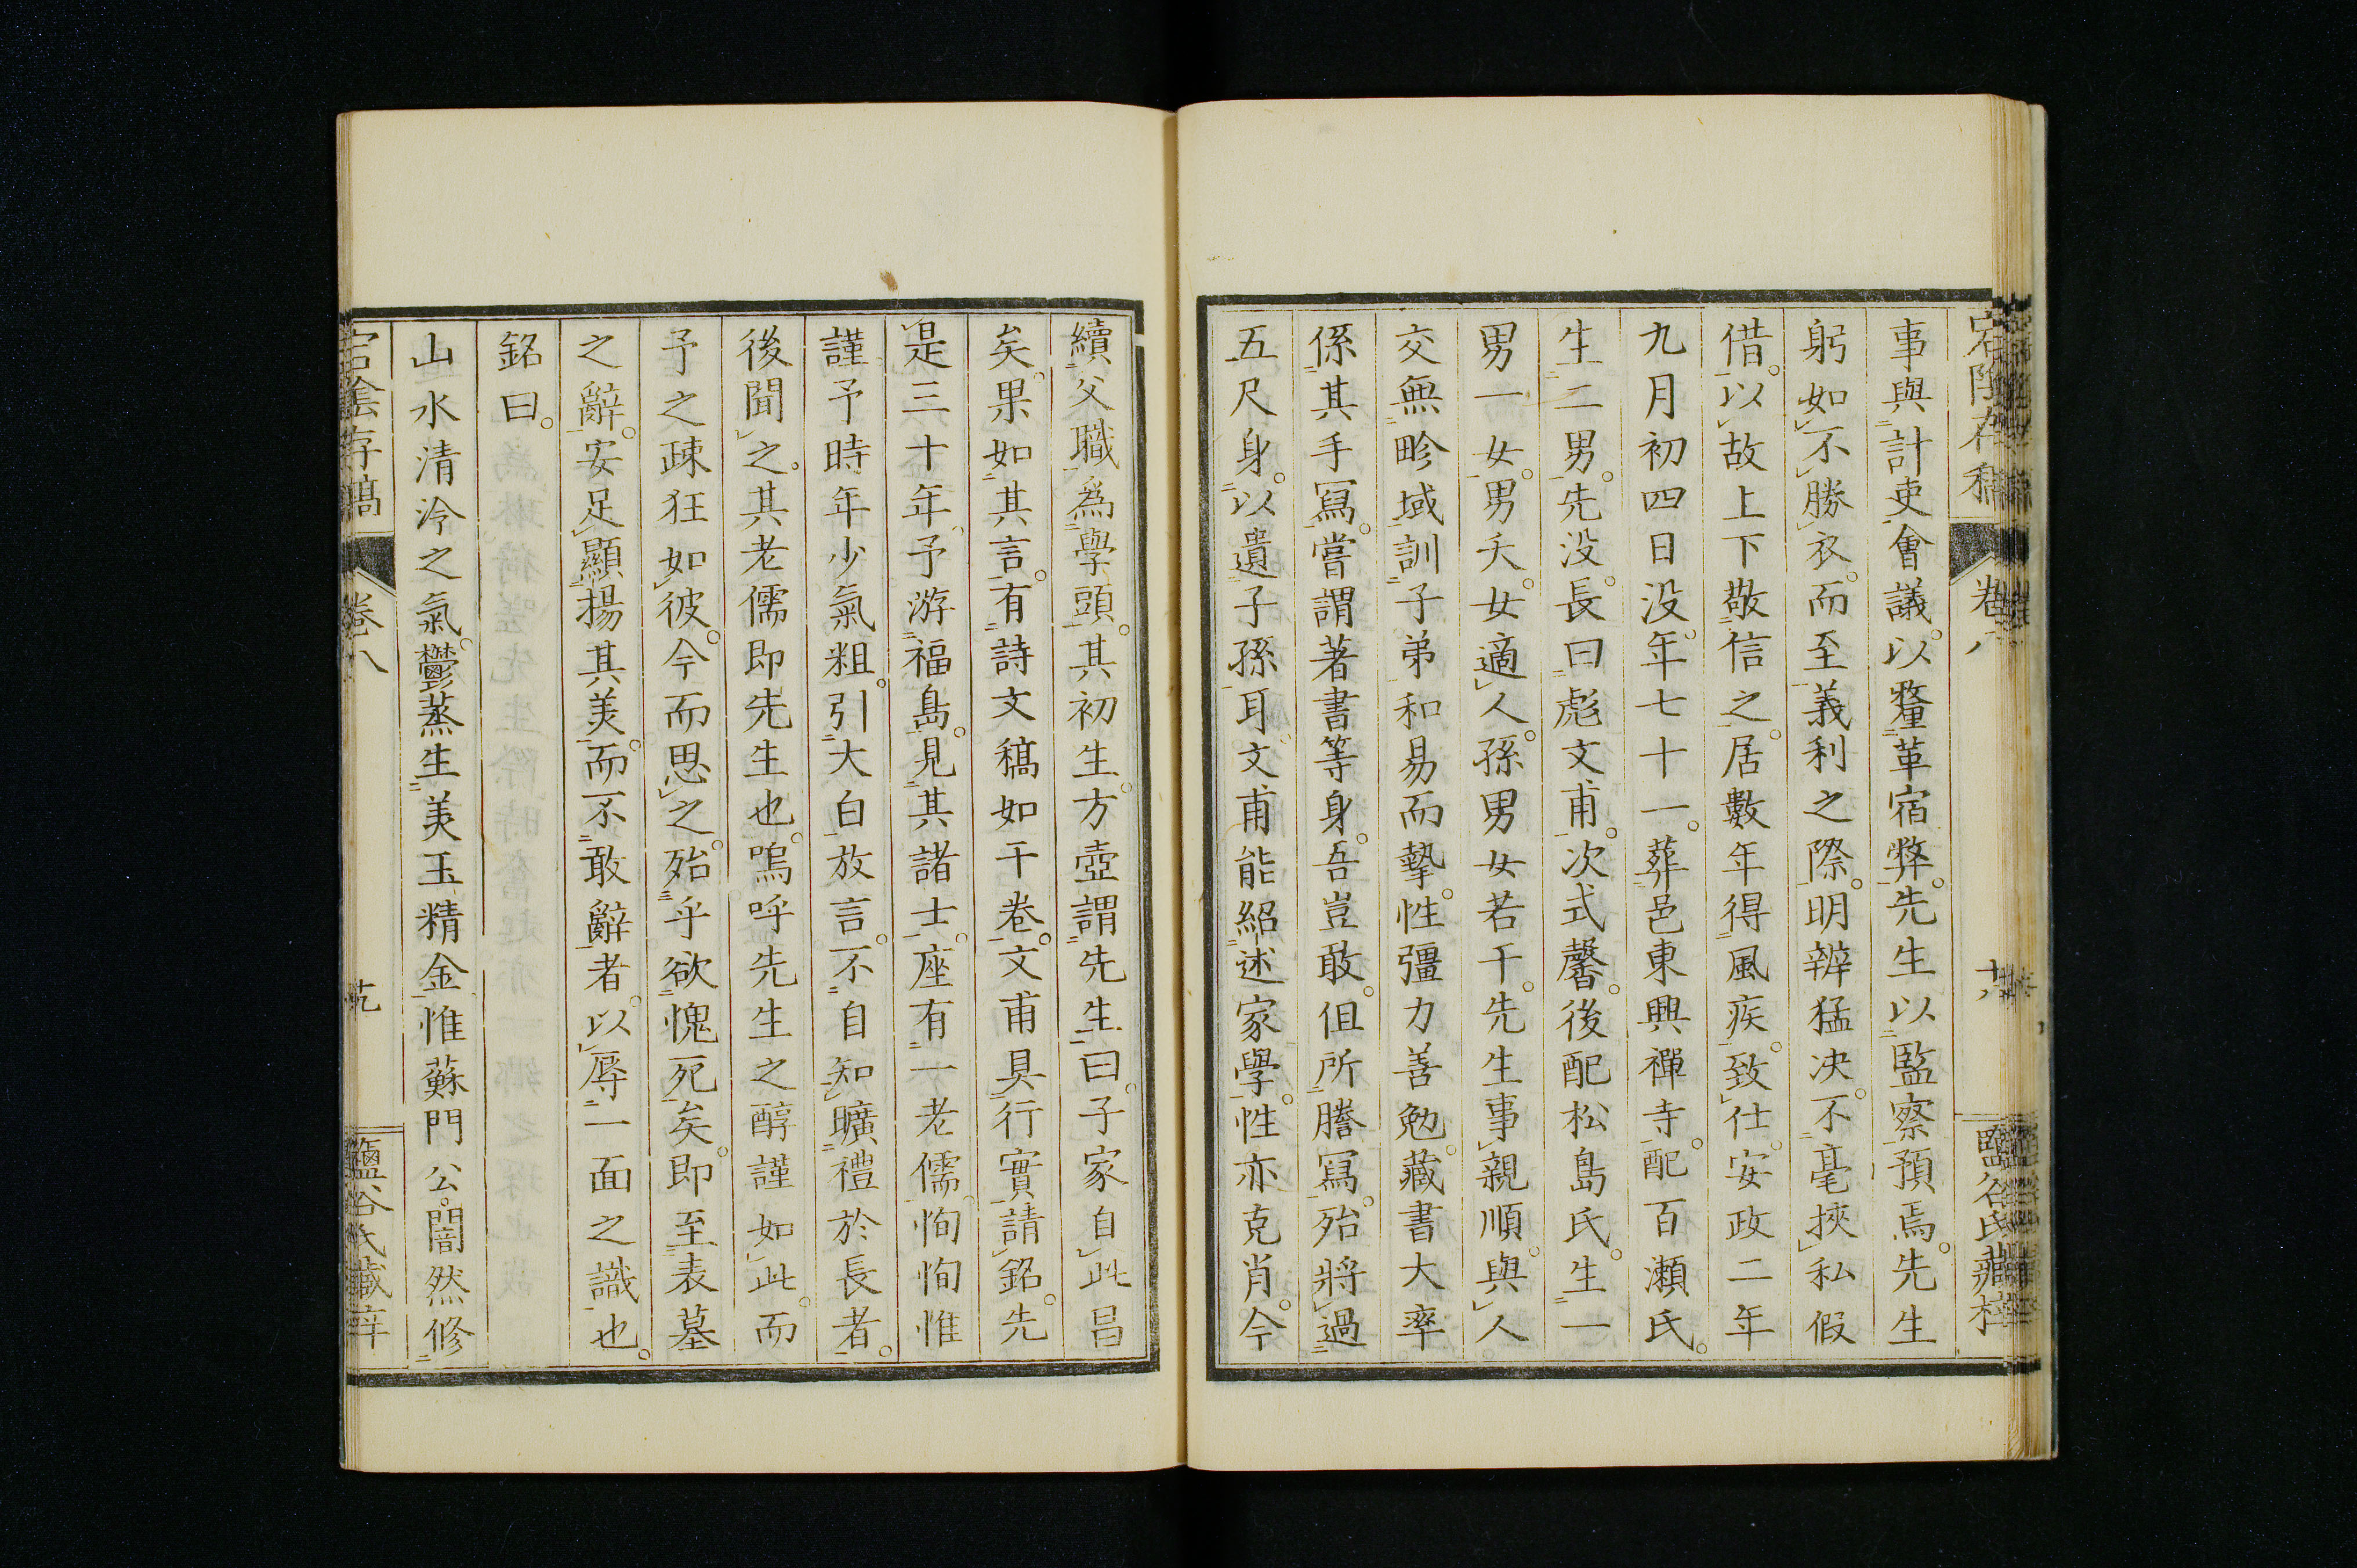 宕陰存稿 卷八 十八 鹽谷氏藏梓
事與計吏會議。以釐革宿弊。先生以監察預焉。先生
躬如不勝衣。而至義利之際。明辨猛决。不毫挾私假
借。以故上下敬信之。居數年得風疾。致仕。安政二年
九月初四日没。年七十一。葬邑東興禪寺。配百瀨氏。
生二男。先没。長曰彪文甫。次式馨。後配松島氏。生一
男一女。男夭。女適人。孫男女若干。先生事親順。與人
交無畛域。訓子弟和易而摯。性彊力善勉。藏書大率
係其手寫。嘗謂著書等身。吾豈敢。但所謄寫。殆將過
五尺身。以遺子孫耳。文甫能紹述家學。性亦克肖。今
續父職。爲學頭。其初生。方壺謂先生曰。子家自此昌
矣。果如其言。有詩文稿如干卷。文甫具行實請銘。先
是三十年。予游福島。見其諸士。座有一老儒。恂恂惟
謹。予時年少氣粗。引大白放言。不自知曠禮於長者。
後聞之。其老儒即先生也。嗚呼先生之醇謹如此。而
予之疎狂如彼。今而思之。殆乎欲愧死矣。即至表墓
之辭。安足顯揚其美。而不敢辭者。以辱一面之識也。
銘曰。
山水清泠之氣。鬱蒸生美玉精金。惟蘇門公。闇然修
宕陰存稿 卷八 十九 鹽谷氏藏梓